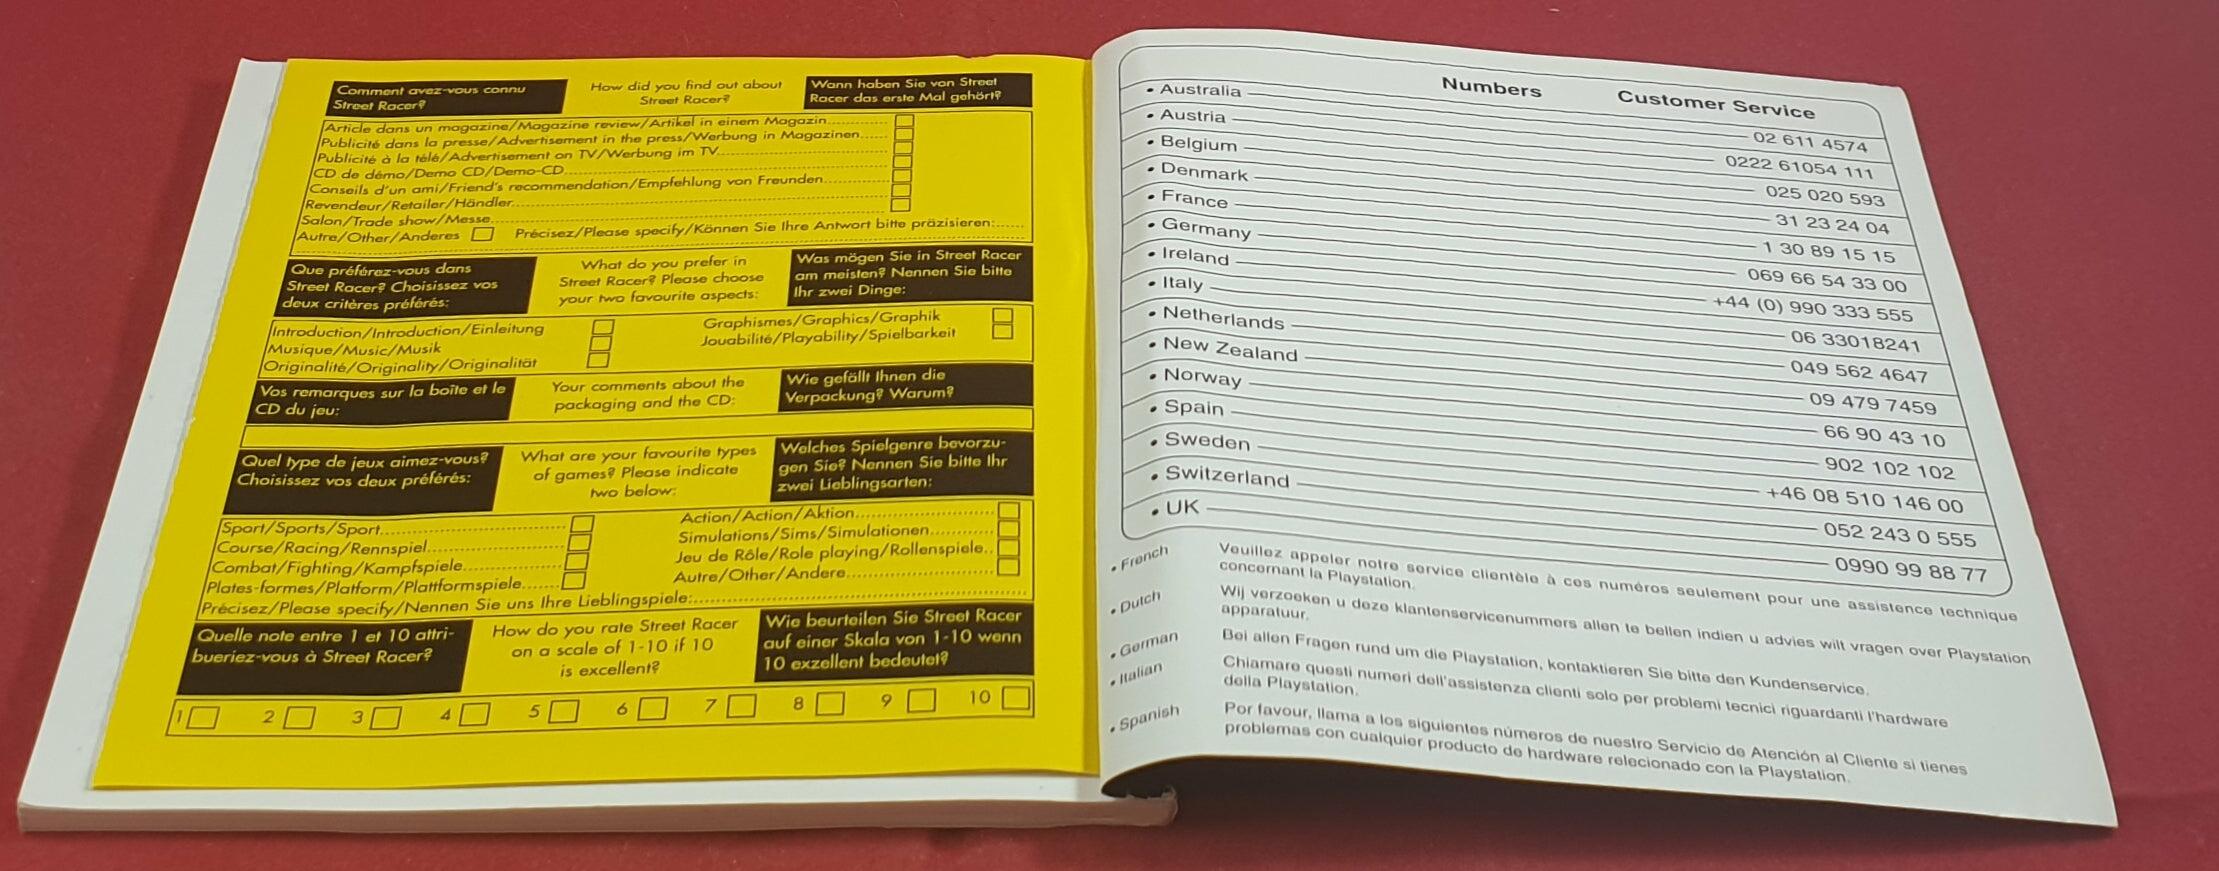 Comment avez-vous connu
Street Racer?
How did you find out about
Street Racer?
Wann haben Sie von Street
Racer das erste Mal gehört?
Article dans un magazine/Magazine review/Artikel in einem Magazin
Publicité dans la presse/Advertisement in the press/Werbung in Magazinen
Publicité à la télé/Advertisement on TV/Werbung im TV
CD de démo/Demo CD/Demo-CD
Conseils d'un ami/Friend's recommendation/Empfehlung von Freunden
Revendeur/Retailer/Händler
Salon/Trade show/Messe
Autre/Other/Anderes Précisez/Please specify/Können Sie Ihre Antwort bitte präzisieren:
Que préférez-vous dans
Street Racer? Choisissez vos
deux critères préférés:
What do you prefer in
Street Racer? Please choose
your two favourite aspects:
Was mögen Sie in Street Racer
am meisten? Nennen Sie bitte
Ihr zwei Dinge:
Introduction/Introduction/Einleitung
Musique/Music/Musik
Originalité/Originality/Originalität
Graphismes/Graphics/Graphik
Jouabilité/Playability/Spielbarkeit
Vos remarques sur la boîte et le
CD du jeu:
Your comments about the
packaging and the CD:
Wie gefällt Ihnen die
Verpackung? Warum?
Quel type de jeux aimez-vous?
Choisissez vos deux préférés:
What are your favourite types
of games? Please indicate
two below:
Welches Spielgenre bevorzu-
gen Sie? Nennen Sie bitte Ihr
zwei Lieblingsarten:
Sport/Sports/Sport
Course/Racing/Rennspiel
Combat/Fighting/Kampfspiele
Plates-formes/Platform/Plattformspiele
Action/Action/Aktion
Simulations/Sims/Simulationen
Jeu de Rôle/Role playing/Rollenspiele
Autre/Other/Andere
Précisez/Please specify/Nennen Sie uns Ihre Lieblingspiele:
Quelle note entre 1 et 10 attri-
bueriez-vous à Street Racer?
How do you rate Street Racer
on a scale of 1-10 if 10
is excellent?
Wie beurteilen Sie Street Racer
auf einer Skala von 1-10 wenn
10 exzellent bedeutet?
1 2 3 4 5 6 7 8 9 10
Numbers Customer Service
• Australia 02 611 4574
• Austria 0222 61054 111
• Belgium 025 020 593
• Denmark 31 23 24 04
• France 1 30 89 15 15
• Germany 069 66 54 33 00
• Ireland +44 (0) 990 333 555
• Italy 06 33018241
• Netherlands 049 562 4647
• New Zealand 09 479 7459
• Norway 66 90 43 10
• Spain 902 102 102
• Sweden +46 08 510 146 00
• Switzerland 052 243 0 555
• UK 0990 99 88 77
• French Veuillez appeler notre service clientèle à ces numéros seulement pour une assistence technique
concernant la Playstation.
• Dutch Wij verzoeken u deze klantenservicenummers allen te bellen indien u advies wilt vragen over Playstation
apparatuur.
• German Bei allen Fragen rund um die Playstation, kontaktieren Sie bitte den Kundenservice.
• Italian Chiamare questi numeri dell'assistenza clienti solo per problemi tecnici riguardanti l'hardware
della Playstation.
• Spanish Por favour, llama a los siguientes números de nuestro Servicio de Atención al Cliente si tienes
problemas con cualquier producto de hardware relecionado con la Playstation.